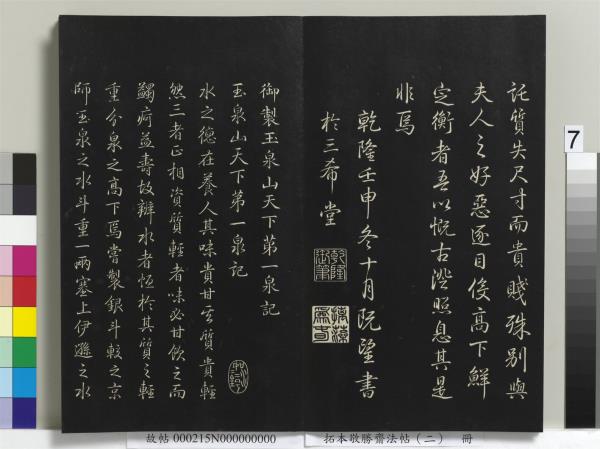 託質失尺寸而貴賤殊別與
夫人之好惡逐目俊高下鮮
定衡者吾以慨古澄照息其是
非焉
乾隆壬申冬十月既望書
於三希堂
乾隆
御筆
御製玉泉山天下第一泉記
玉泉山天下第一泉記
水之德在養人其味貴甘其質貴輕
然三者正相資質輕者味必甘飲之而
蠲疴益壽故辨水者恆於其質之輕
重分泉之高下焉嘗製銀斗較之京
師玉泉之水斗重一兩塞上伊遜之水
7
故帖 000215N000000000
拓本敬勝齋法帖（二） 冊